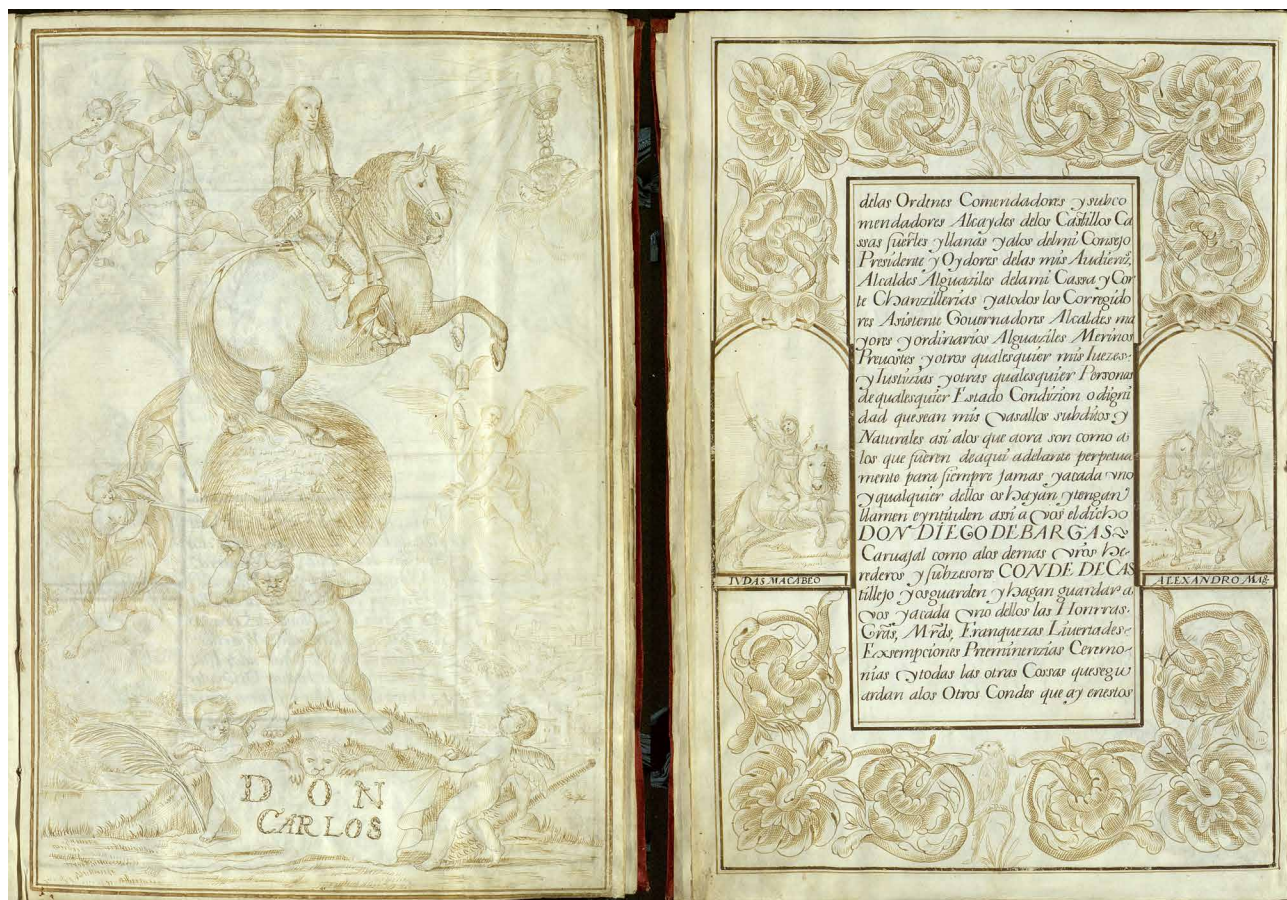 DON
CARLOS
delas Ordenes Comendadores y subco
mendadores Alcaydes delos Castillos Ca
ssas fuertes y llanas y alos delmi Consejo
Presidente y Oydores delas mis Audienz.
Alcaldes Alguaziles delami Cassa y Cor
te Chanzillerias yatodos los Corregido
res Asistente Gouernadores Alcaldes ma
yores y ordinarios Alguaziles Merinos
Preuostes y otros qualesquier mis Iuezes
y Iustizias y otras qualesquier Personas
de qualesquier Estado Condizion o digni
dad que sean mis vasallos subditos y
Naturales asi alos que aora son como a
los que fueren de aqui adelante perpetua
mente para siempre Jamas yacada vno
y qualquier dellos os hayan y tengan
llamen e yntitulen assi a vos el dicho
DON DIEGO DE BARGAS
Caruajal como alos demas vros he-
rederos y subzesores CONDE DE CAS
tillejo y os guarden y hagan guardar a
vos yacada vno dellos las Honrras.
Grās, Mrds, Franquezas Liuertades
Exsempciones Preeminenzias Ceremo-
nias y todas las otras Cossas que segu
ardan alos Otros Condes que ay enestos
IVDAS MACABEO
ALEXANDRO MAG.